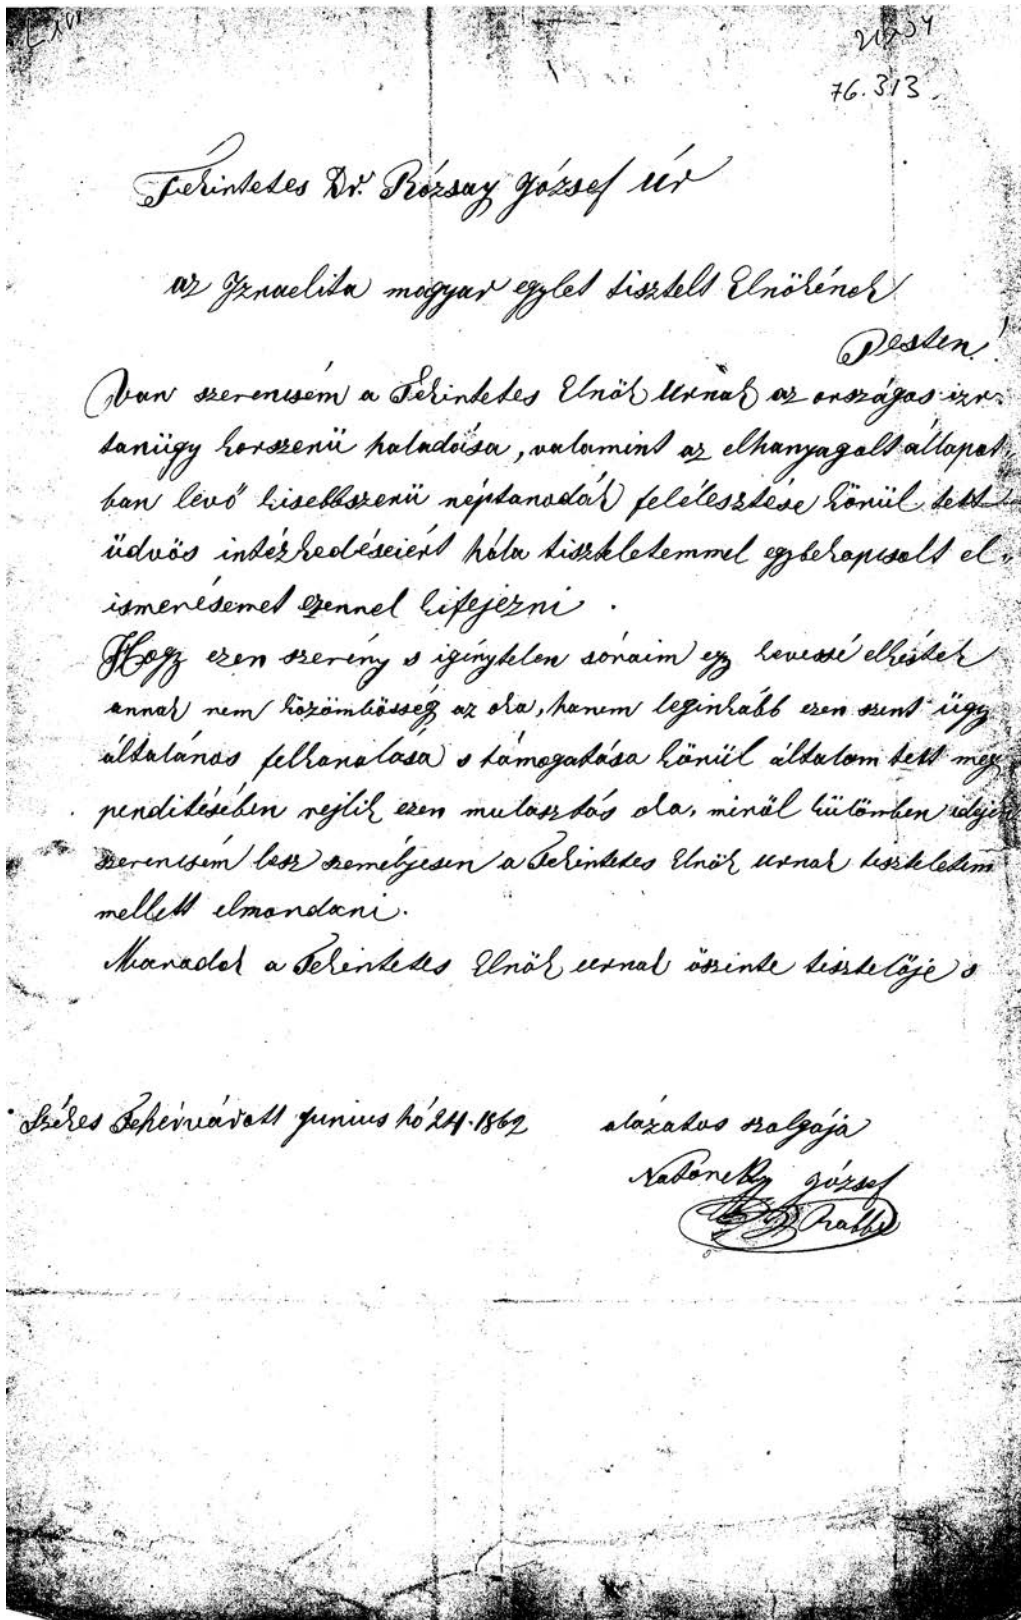 76.313
Tekintetes Dr. Rózsay József Úr
az Izraelita magyar egylet tisztelt Elnökének
Pesten!
Van szerencsém a Tekintetes Elnök Urnak az országos izr.
tanügy korszerü haladása, valamint az elhanyagolt állapot„
ban levő kisebbszerü néptanodák felélesztése körül tett
üdvös intézkedéseiért hála tiszteletemmel egybekapcsolt el„
ismerésemet ezennel kifejezni.
Hogy ezen szerény s igénytelen soraim egy kevessé elkéstek
annak nem közömbösség az oka, hanem leginkább ezen szent ügy
általános felkarolása s támogatása körül általam tett meg
penditésében rejlik ezen mulasztás oka, miről külömben idején
szerencsém lesz személyesen a Tekintetes Elnök urnak tiszteletem
mellett elmondani.
Maradok a Tekintetes Elnök urnak őszinte tisztelője s
Székes Fehérvárott Junius hó 24. 1862
alázatos szolgája
Natonek József
Rabbi